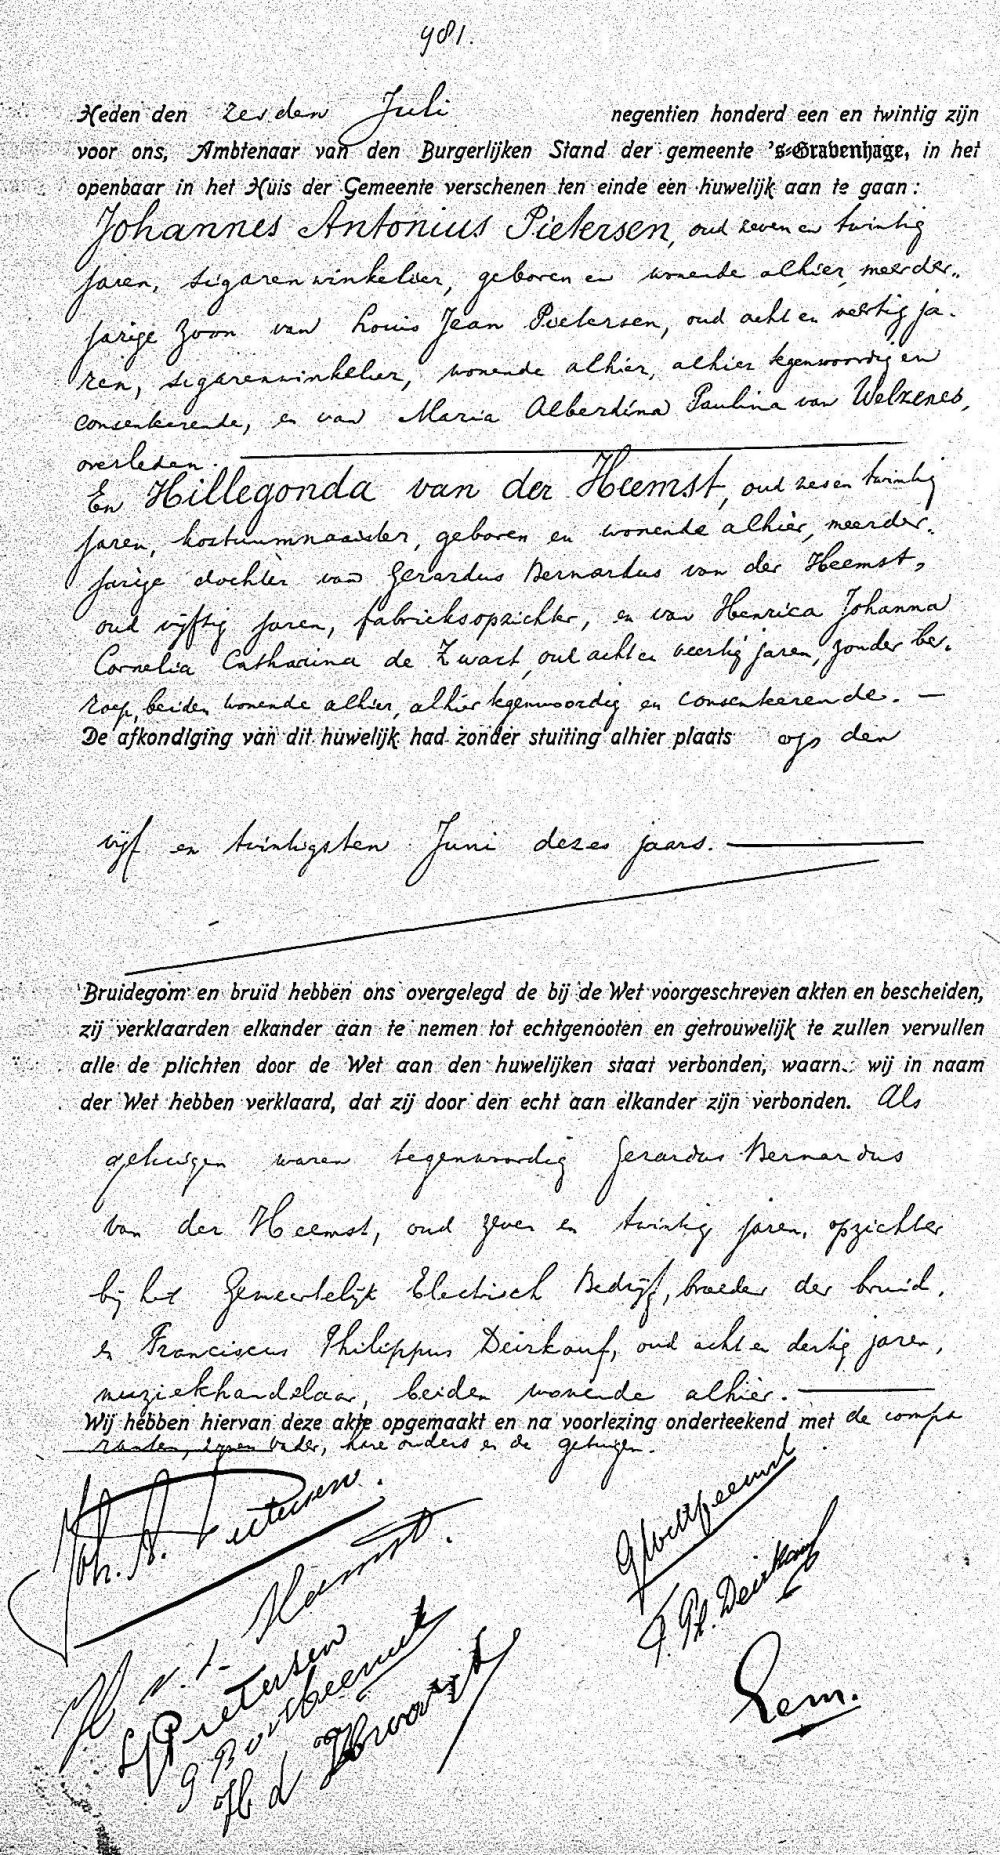 981.
Heden den zesden Juli negentien honderd een en twintig zijn
voor ons, Ambtenaar van den Burgerlijken Stand der gemeente 's-Gravenhage, in het
openbaar in het Huis der Gemeente verschenen ten einde een huwelijk aan te gaan:
Johannes Antonius Pietersen, oud zeven en twintig
jaren, sigarenwinkelier, geboren en wonende alhier, meerder-
jarige zoon van Louis Jean Pietersen, oud acht en veertig ja-
ren, sigarenwinkelier, wonende alhier, alhier tegenwoordig en
consenteerende, en van Maria Alberdina Paulina van Welzenes,
overleden.
En Hillegonda van der Heemst, oud zes en twintig
jaren, kostuumnaaister, geboren en wonende alhier, meerder-
jarige dochter van Gerardus Bernardus van der Heemst,
oud vijftig jaren, fabrieksopzichter, en van Henrica Johanna
Cornelia Catharina de Zwart, oud acht en veertig jaren, zonder be-
roep, beiden wonende alhier, alhier tegenwoordig en consenteerende. —
De afkondiging van dit huwelijk had zonder stuiting alhier plaats op den
vijf en twintigsten Juni dezes jaars.
Bruidegom en bruid hebben ons overgelegd de bij de Wet voorgeschreven akten en bescheiden,
zij verklaarden elkander aan te nemen tot echtgenooten en getrouwelijk te zullen vervullen
alle de plichten door de Wet aan den huwelijken staat verbonden, waarn. wij in naam
der Wet hebben verklaard, dat zij door den echt aan elkander zijn verbonden. Als
getuigen waren tegenwoordig Gerardus Bernardus
van der Heemst, oud zeven en twintig jaren, opzichter
bij het Gemeentelijk Electrisch Bedrijf, broeder der bruid,
en Franciscus Philippus Deirkauf, oud acht en dertig jaren,
muziekhandelaar, beiden wonende alhier.
Wij hebben hiervan deze akte opgemaakt en na voorlezing onderteekend met de compa
ranten, zijnen vader, hare ouders en de getuigen.
Joh. A. Pietersen.
G B vd Heemst
H. v. d. Heemst.
F. Ph. Deirkauf
L J Pietersen
G B vd Heemst
H d Zwart